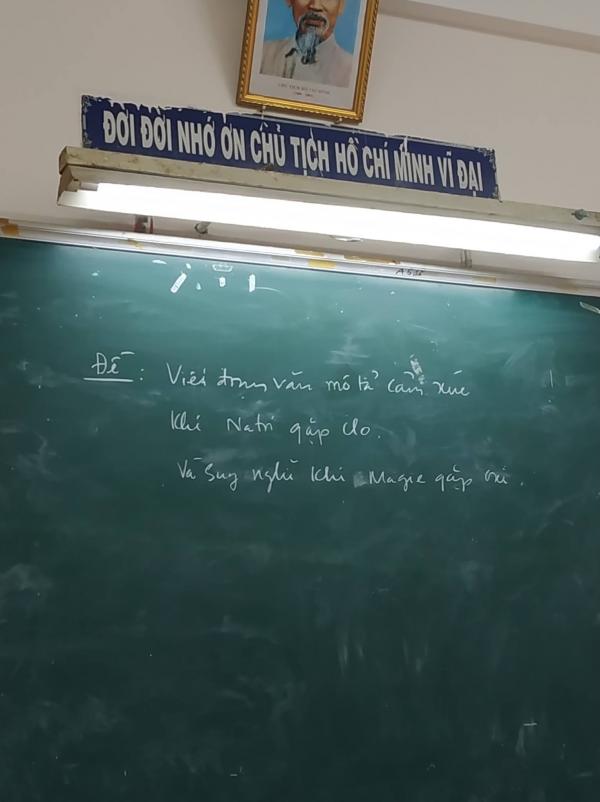 ĐỜI ĐỜI NHỚ ƠN CHỦ TỊCH HỒ CHÍ MINH VĨ ĐẠI
Đề: Viết đoạn văn mô tả cảm xúc
khi Natri gặp clo.
Và suy nghĩ khi Magie gặp oxi.